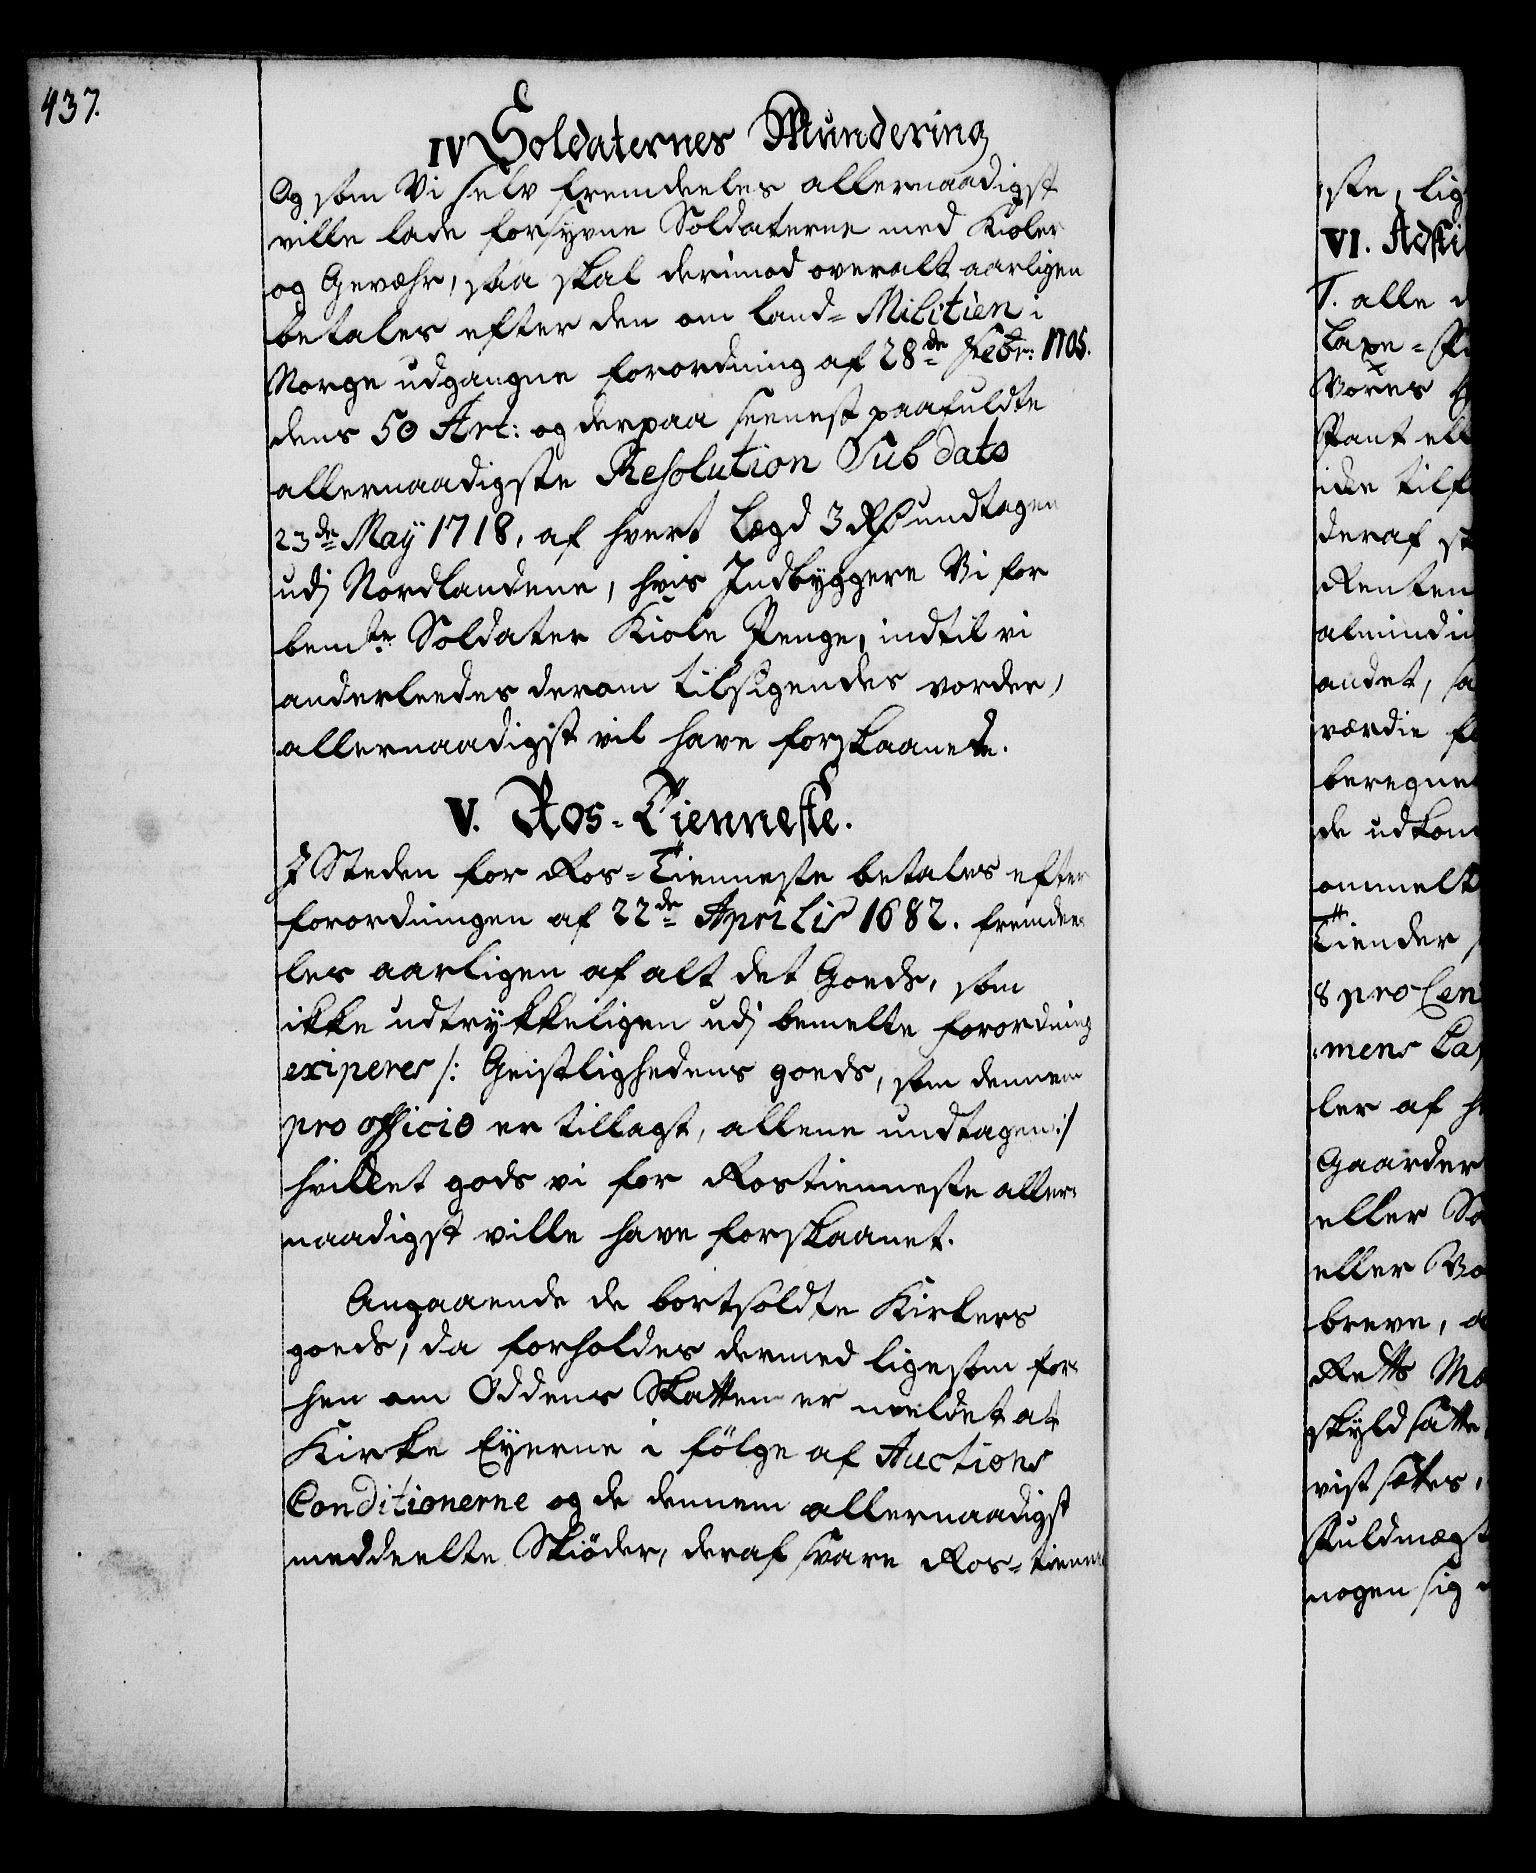 437.
IV Soldaternes Mundering
Og som Vi selv fremdeeles allernaadigst
ville lade forsyvne Soldaterne med Kioler
og Gevæhr, saa skal derimod overalt aarligen
betales efter den om Land-Militien i
Norge udgangne forordning af 28de Febr: 1705.
dens 50 Art: og derpaa seenest paafuldte
allernaadigste Resolution Sub dato
23de May 1718, af hvert Lægd 3 Rd undtagen
udj Nordlandene, hvis Indbyggere Vi for
bemte Soldater Kiole Penge, indtil vi
anderleedes derom tilsigendes vorder,
allernaadigst vil have forskaanede.
V. Ros-Tienneste.
I Steden for Ros-Tienneste betales efter
forordningen af 22de Aprilis 1682. fremdee-
les aarligen af alt det Goeds, som
ikke udtrykkeligen udj bemelte forordning
exiperes /: Geistlighedens goeds, som dennem
pro officio er tillagt, allene undtagen :/
hvilket gods vi for Rostienneste aller-
naadigst ville have forskaanet.
Angaaende de bortsoldte Kirkers
goeds, da forholdes dermed ligesom for-
hen om Oddens Skatten er meldet at
Kirke Eyerne i fölge af Auctions
Conditionerne og de dennem allernaadigst
meddeelte Skiöder, deraf svare Ros-tienne
ste, lig
VI. Adski
T. alle
Laxe-
Vores
Pant ell
icke tilf
deraf
Renten
almindi
andet, sa
værdie
beregne
de udkom
ommelt
Tiender
8 pro Cen
mens La
ler af
Gaarder
eller So
eller
breve,
Retts
skyld satte
vist sættes,
Fuldmægt
nogen sig